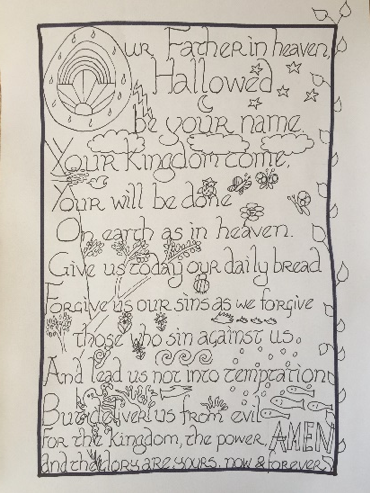 Our Father in heaven,
Hallowed
be your name
Your Kingdom come,
Your will be done
On earth as in heaven.
Give us today our daily bread
Forgive us our sins as we forgive
those who sin against us.
And lead us not into temptation
But deliver us from evil
For the Kingdom, the power, AMEN
and the glory are yours, now & forever